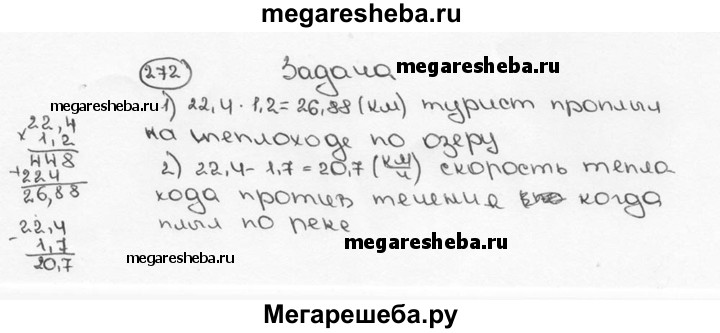 megaresheba.ru
272 Задача megaresheba.ru
megaresheba.ru 1) 22,4 · 1,2 = 26,88 (км) турист проплыл
на теплоходе по озеру
2) 22,4 - 1,7 = 20,7 (км/ч) скорость тепла
хода против течение когда
плыл по реке
22,4
× 1,2
448
+ 224
26,88
22,4
- 1,7
20,7
megaresheba.ru megaresheba.ru
Мегарешеба.ру